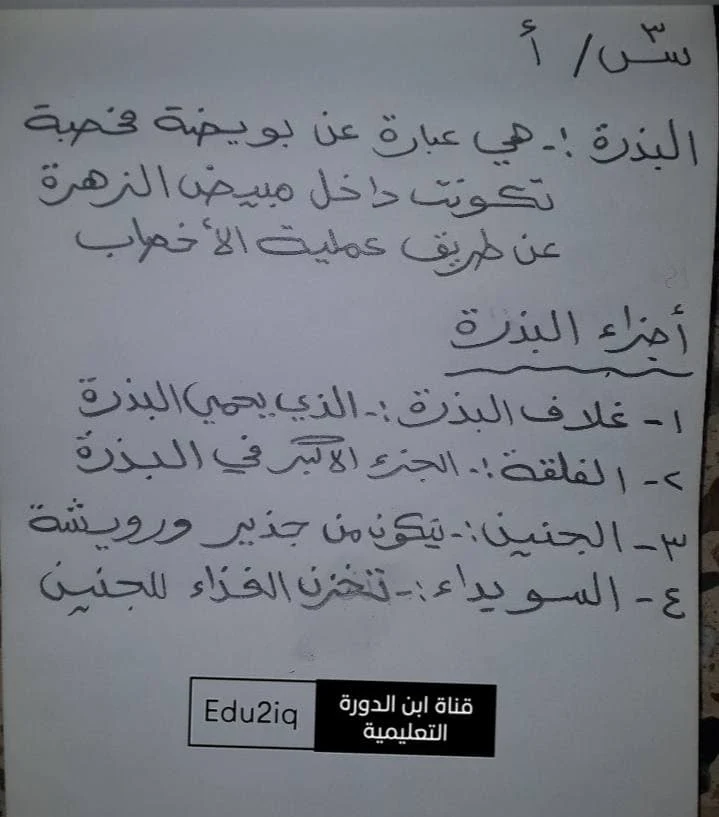 س٣/ أ
البذرة :- هي عبارة عن بويضة مخصبة
تكونت داخل مبيض الزهرة
عن طريق عملية الأخصاب
أجزاء البذرة
١- غلاف البذرة :- الذي يحمي البذرة
٢- الفلقة :- الجزء الاكبر في البذرة
٣- الجنين :- يتكون من جذير ورويشة
٤- السويداء :- تخزن الغذاء للجنين
قناة ابن الدورة
التعليمية
Edu2iq